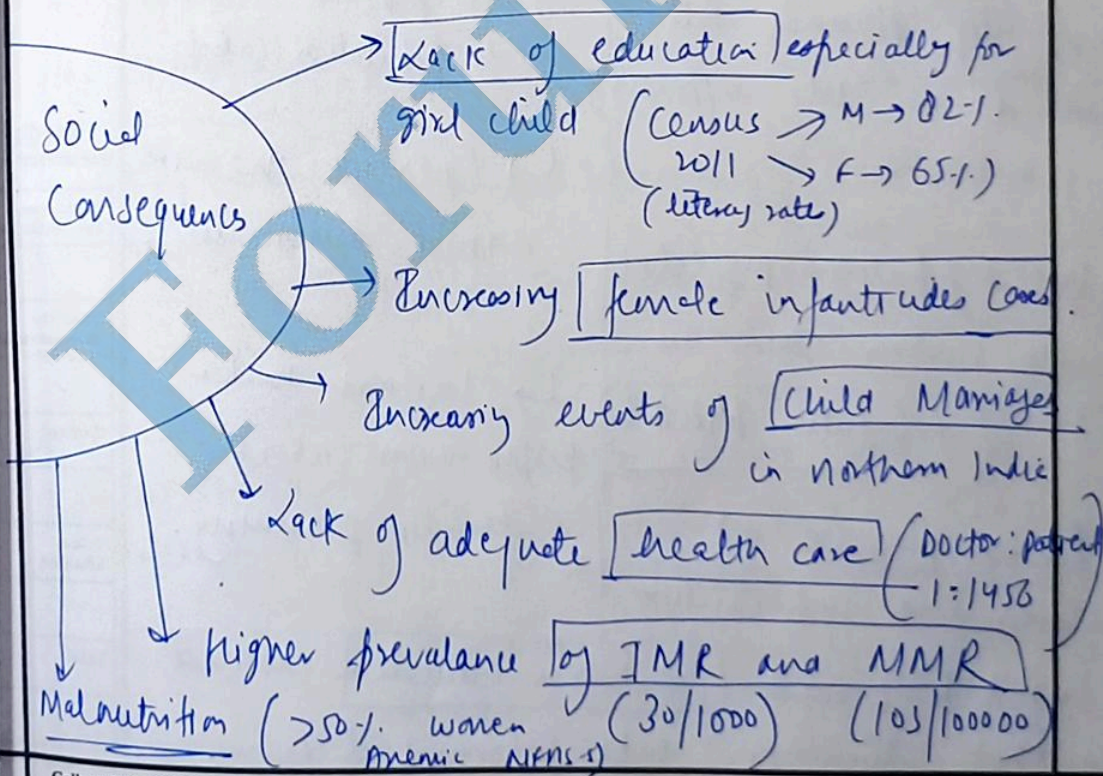 Social
Consequences
Lack of education especially for
girl child (Census → M → 82%.
2011 → F → 65%.)
(literacy rate)
Increasing female infantcides cases.
Increasing events of Child Marriages
in northern India
Lack of adequate health care (Doctor : patient
1:1456)
Higher prevalance of IMR and MMR
(30/1000) (103/100000)
Malnutrition (>50%. women
Anemic NFHS-5)
Forum